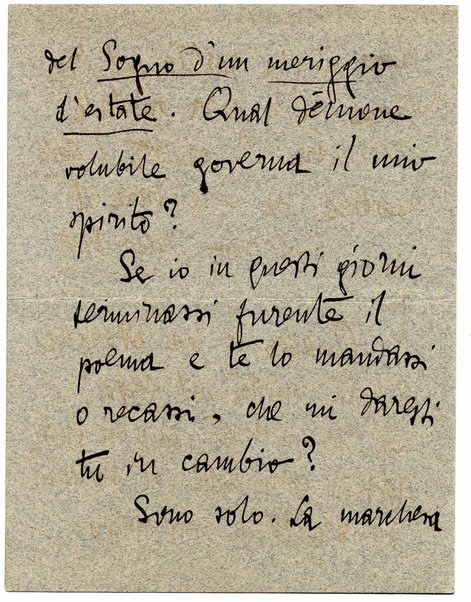 del Sogno d'un meriggio
d'estate. Qual dèmone
volubile governa il mio
spirito?
Se io in questi giorni
terminassi furente il
poema e te lo mandassi
o recassi, che mi daresti
tu in cambio?
Sono solo. La marchesa